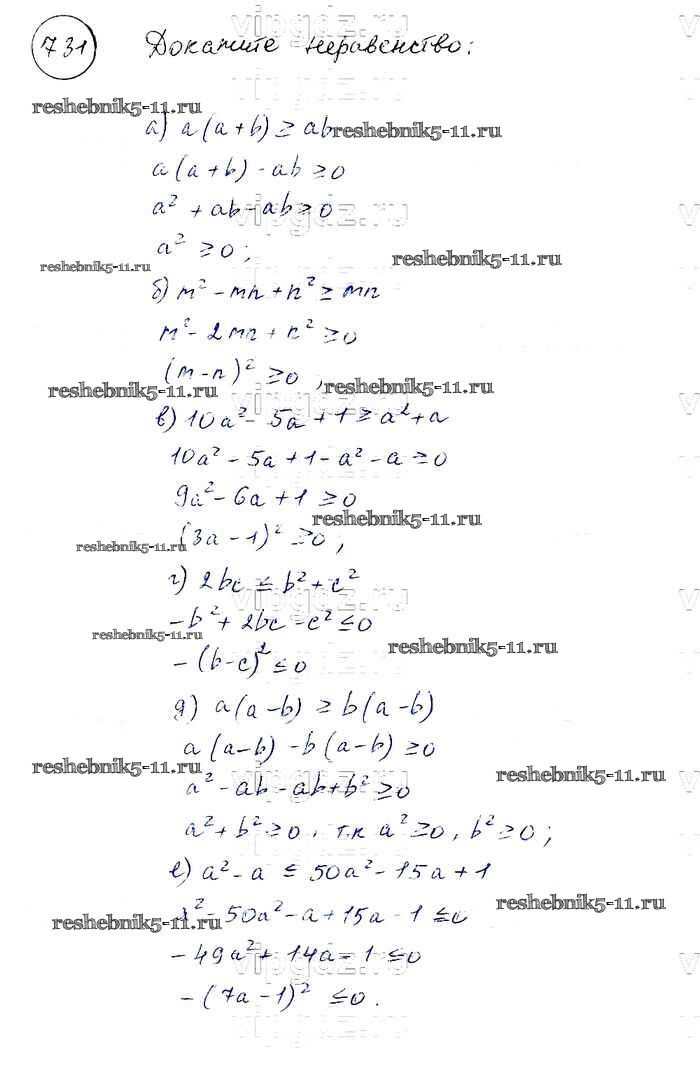 731 Докажите неравенство:
reshebnik5-11.ru
а) a(a+b) ≥ ab reshebnik5-11.ru
a(a+b) - ab ≥ 0
a² + ab - ab ≥ 0
vipgdz.ru
a² ≥ 0;
reshebnik5-11.ru reshebnik5-11.ru
б) m² - mn + n² ≥ mn
m² - 2mn + n² ≥ 0
(m-n)² ≥ 0,
reshebnik5-11.ru reshebnik5-11.ru
в) 10a² - 5a + 1 ≥ a² + a
10a² - 5a + 1 - a² - a ≥ 0
9a² - 6a + 1 ≥ 0
reshebnik5-11.ru
(3a - 1)² ≥ 0;
reshebnik5-11.ru
г) 2bc ≤ b² + c²
-b² + 2bc - c² ≤ 0
reshebnik5-11.ru reshebnik5-11.ru
-(b-c)² ≤ 0
д) a(a-b) ≥ b(a-b)
a(a-b) - b(a-b) ≥ 0
reshebnik5-11.ru reshebnik5-11.ru
a² - ab - ab + b² ≥ 0
a² + b² ≥ 0, т.к a² ≥ 0, b² ≥ 0;
е) a² - a ≤ 50a² - 15a + 1
reshebnik5-11.ru
a² - 50a² - a + 15a - 1 ≤ 0
reshebnik5-11.ru
-49a² + 14a - 1 ≤ 0
-(7a - 1)² ≤ 0.